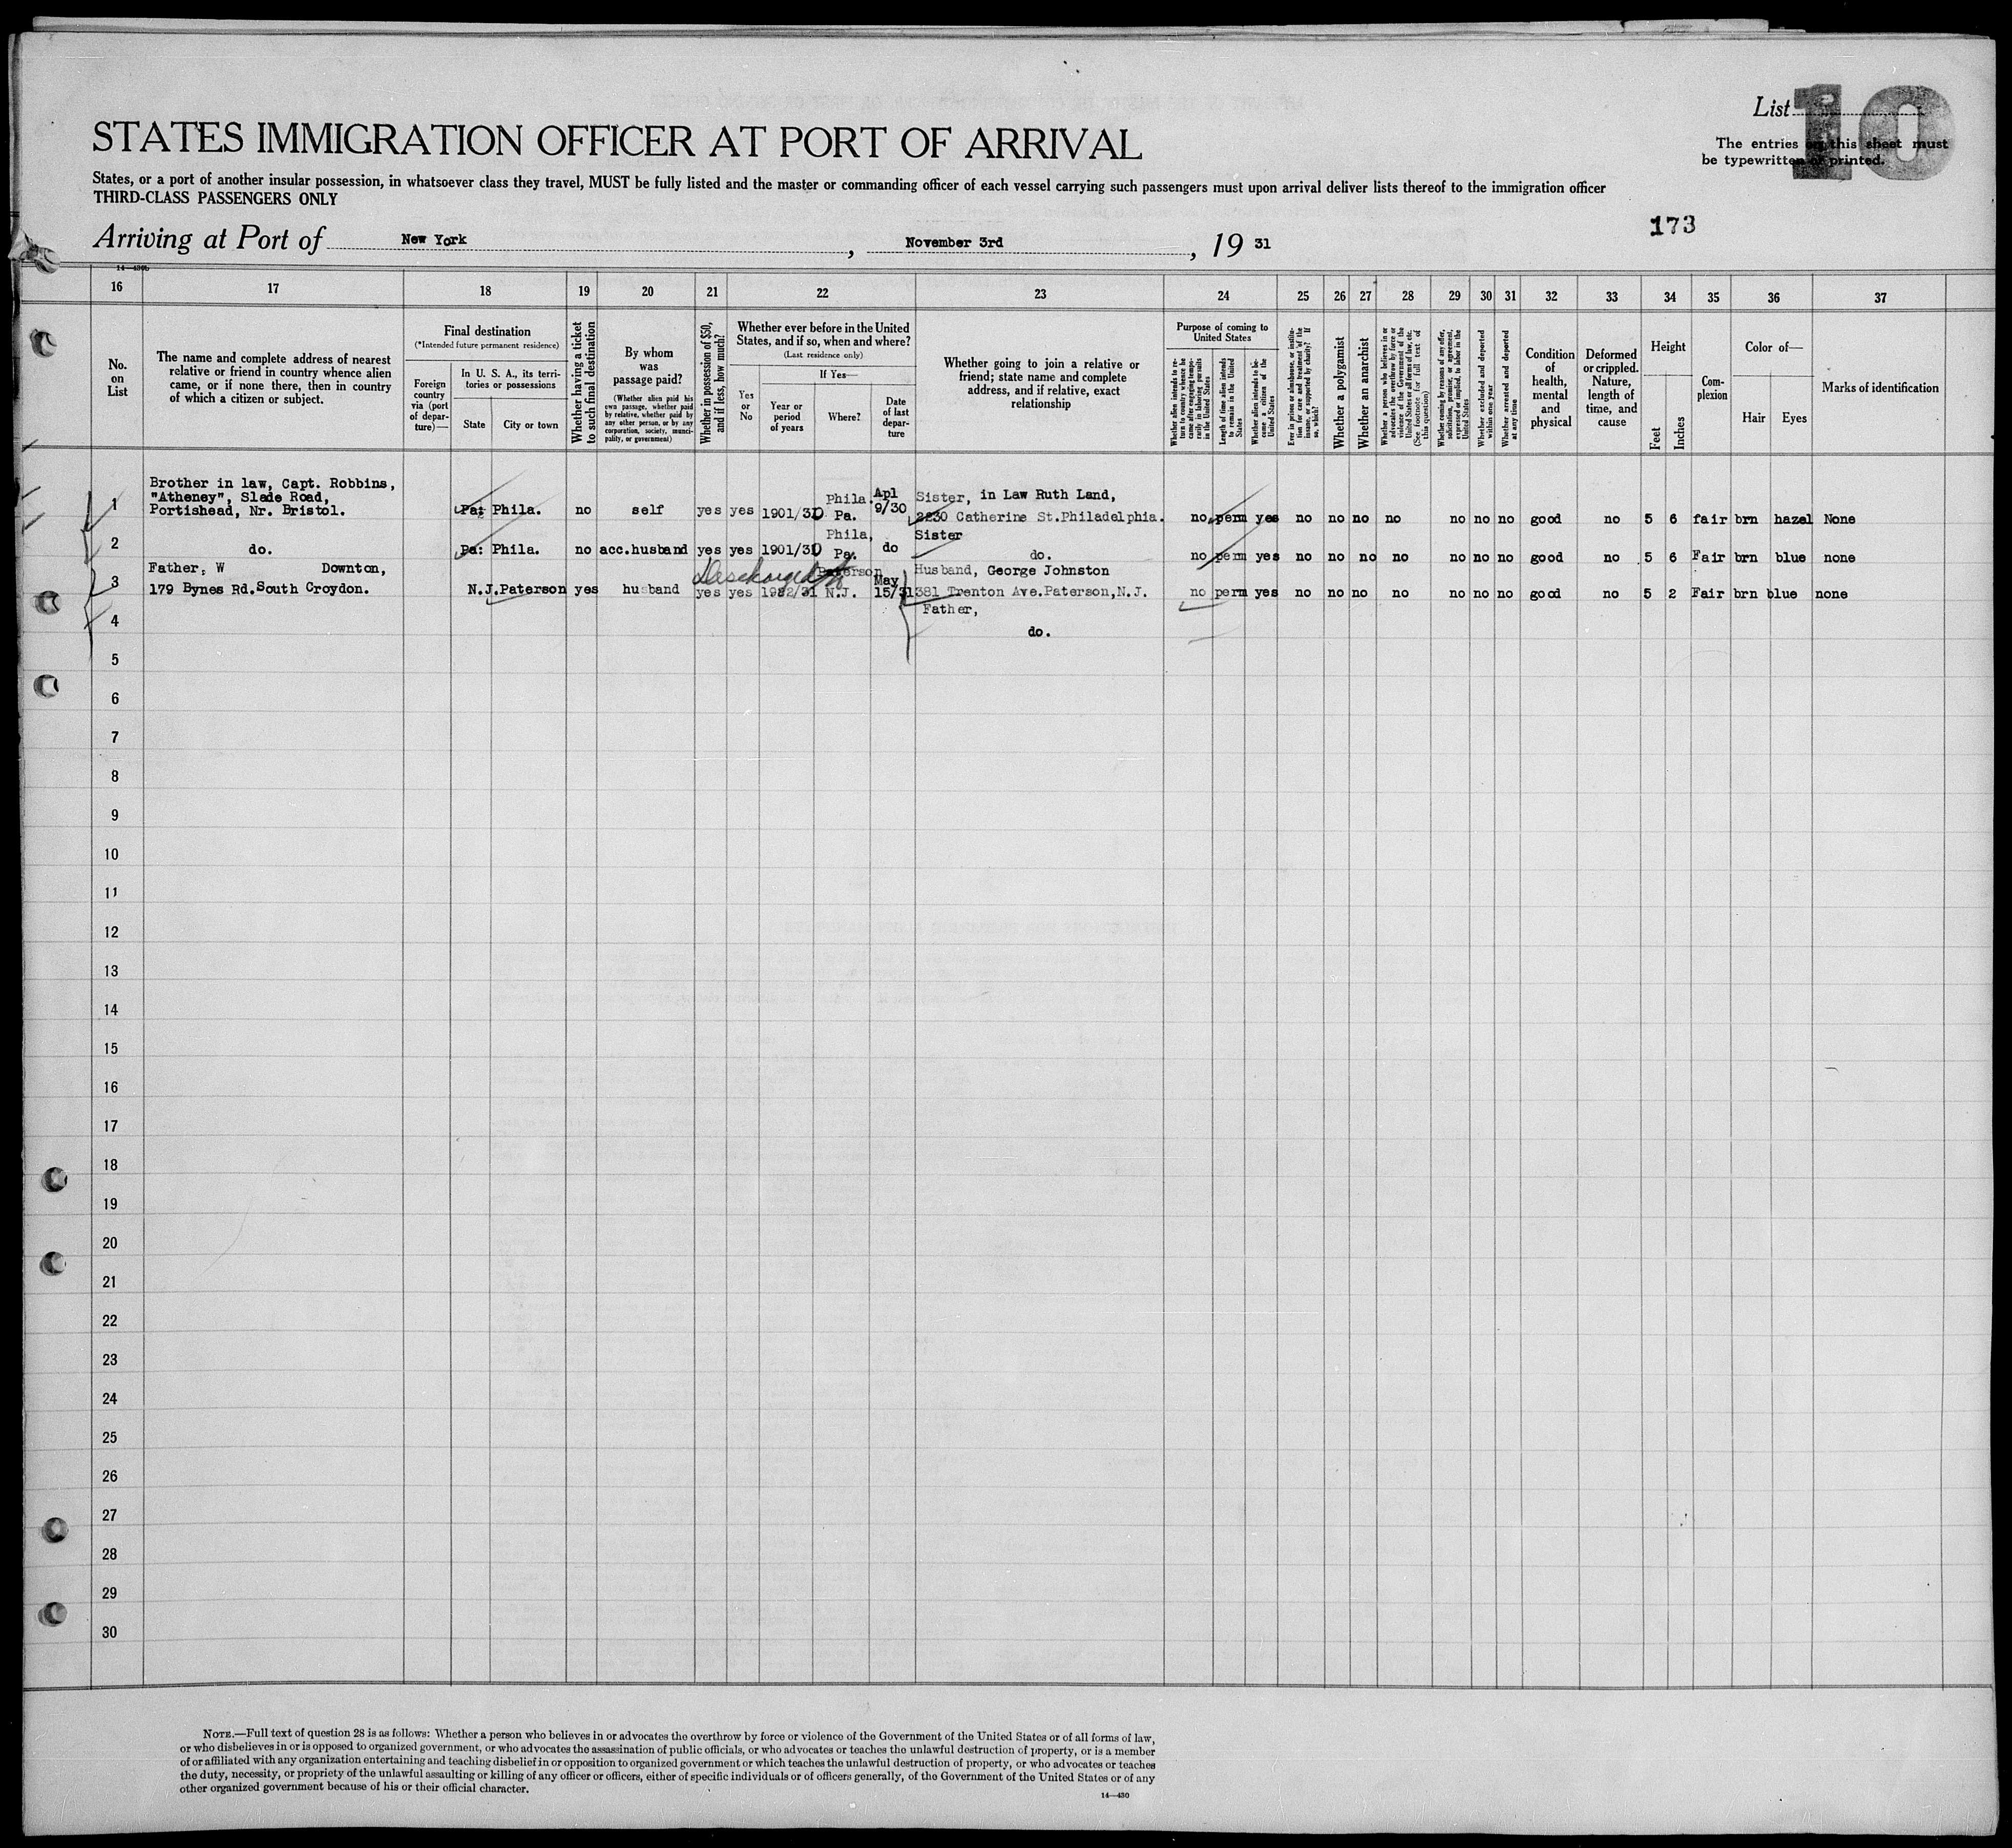 List 10
The entries on this sheet must
be typewritten or printed.
STATES IMMIGRATION OFFICER AT PORT OF ARRIVAL
States, or a port of another insular possession, in whatsoever class they travel, MUST be fully listed and the master or commanding officer of each vessel carrying such passengers must upon arrival deliver lists thereof to the immigration officer
THIRD-CLASS PASSENGERS ONLY
173
Arriving at Port of New York, November 3rd, 19 31
14—430b
16 17 18 19 20 21 22 23 24 25 26 27 28 29 30 31 32 33 34 35 36 37
No. on List
The name and complete address of nearest relative or friend in country whence alien came, or if none there, then in country of which a citizen or subject.
Final destination
(*Intended future permanent residence)
Foreign country via (port of departure)—
In U. S. A., its territories or possessions
State
City or town
Whether having a ticket to such final destination
By whom was passage paid?
(Whether alien paid his own passage, whether paid by relative, whether paid by any other person, or by any corporation, society, municipality, or government)
Whether in possession of $50, and if less, how much?
Whether ever before in the United States, and if so, when and where?
(Last residence only)
Yes or No
If Yes—
Year or period of years
Where?
Date of last departure
Whether going to join a relative or friend; state name and complete address, and if relative, exact relationship
Purpose of coming to United States
Whether alien intends to return to country whence he came after engaging temporarily in laboring pursuits in the United States
Length of time alien intends to remain in the United States
Whether alien intends to become a citizen of the United States
Ever in prison or almshouse, or institution for care and treatment of the insane, or supported by charity? If so, which?
Whether a polygamist
Whether an anarchist
Whether a person who believes in or advocates the overthrow by force or violence of the Government of the United States or all forms of law, etc. (See footnote for full text of this question)
Whether coming by reasons of any offer, solicitation, promise, or agreement, expressed or implied, to labor in the United States
Whether excluded and deported within one year
Whether arrested and deported at any time
Condition of health, mental and physical
Deformed or crippled. Nature, length of time, and cause
Height
Feet
Inches
Complexion
Color of—
Hair
Eyes
Marks of identification
1 Brother in law, Capt. Robbins,
"Atheney", Slade Road,
Portishead, Nr. Bristol. Pa: Phila. no self yes yes 1901/30 Phila. Pa. Apl 9/30 Sister, in Law Ruth Land,
2230 Catherine St.Philadelphia. no perm yes no no no no no no no good no 5 6 fair brn hazel None
2 do. Pa: Phila. no acc.husband yes yes 1901/30 Phila, Pa. do Sister
do. no perm yes no no no no no no no good no 5 6 Fair brn blue none
Discharged
3 Father, W Downton,
179 Bynes Rd.South Croydon. N.J. Paterson yes husband yes yes 1922/31 Paterson N.J. May 15/31 Husband, George Johnston
381 Trenton Ave.Paterson,N.J. no perm yes no no no no no no no good no 5 2 Fair brn blue none
4 Father,
do.
5
6
7
8
9
10
11
12
13
14
15
16
17
18
19
20
21
22
23
24
25
26
27
28
29
30
NOTE.—Full text of question 28 is as follows: Whether a person who believes in or advocates the overthrow by force or violence of the Government of the United States or of all forms of law,
or who disbelieves in or is opposed to organized government, or who advocates the assassination of public officials, or who advocates or teaches the unlawful destruction of property, or is a member
of or affiliated with any organization entertaining and teaching disbelief in or opposition to organized government or which teaches the unlawful destruction of property, or who advocates or teaches
the duty, necessity, or propriety of the unlawful assaulting or killing of any officer or officers, either of specific individuals or of officers generally, of the Government of the United States or of any
other organized government because of his or their official character.
14—430